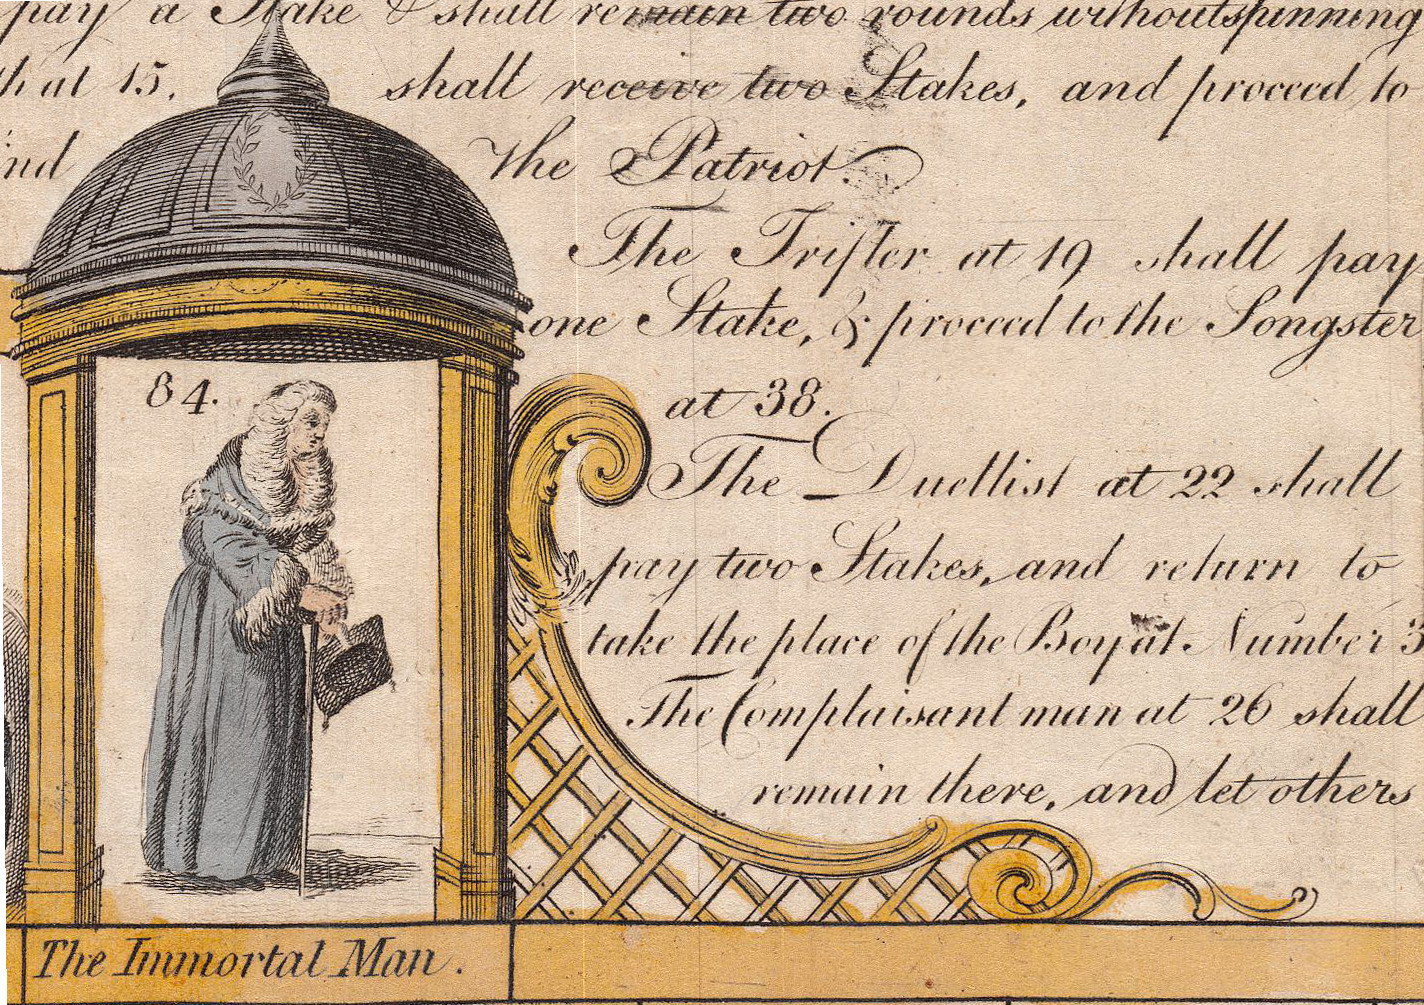 pay a Stake & shall remain two rounds without spinning
th at 15, shall receive two Stakes, and proceed to
ind the Patriot.
The Trifler at 19 shall pay
one Stake, & proceed to the Songster
at 38.
The Duellist at 22 shall
pay two Stakes, and return to
take the place of the Boy at Number 3
The Complaisant man at 26 shall
remain there, and let others
84.
The Immortal Man.